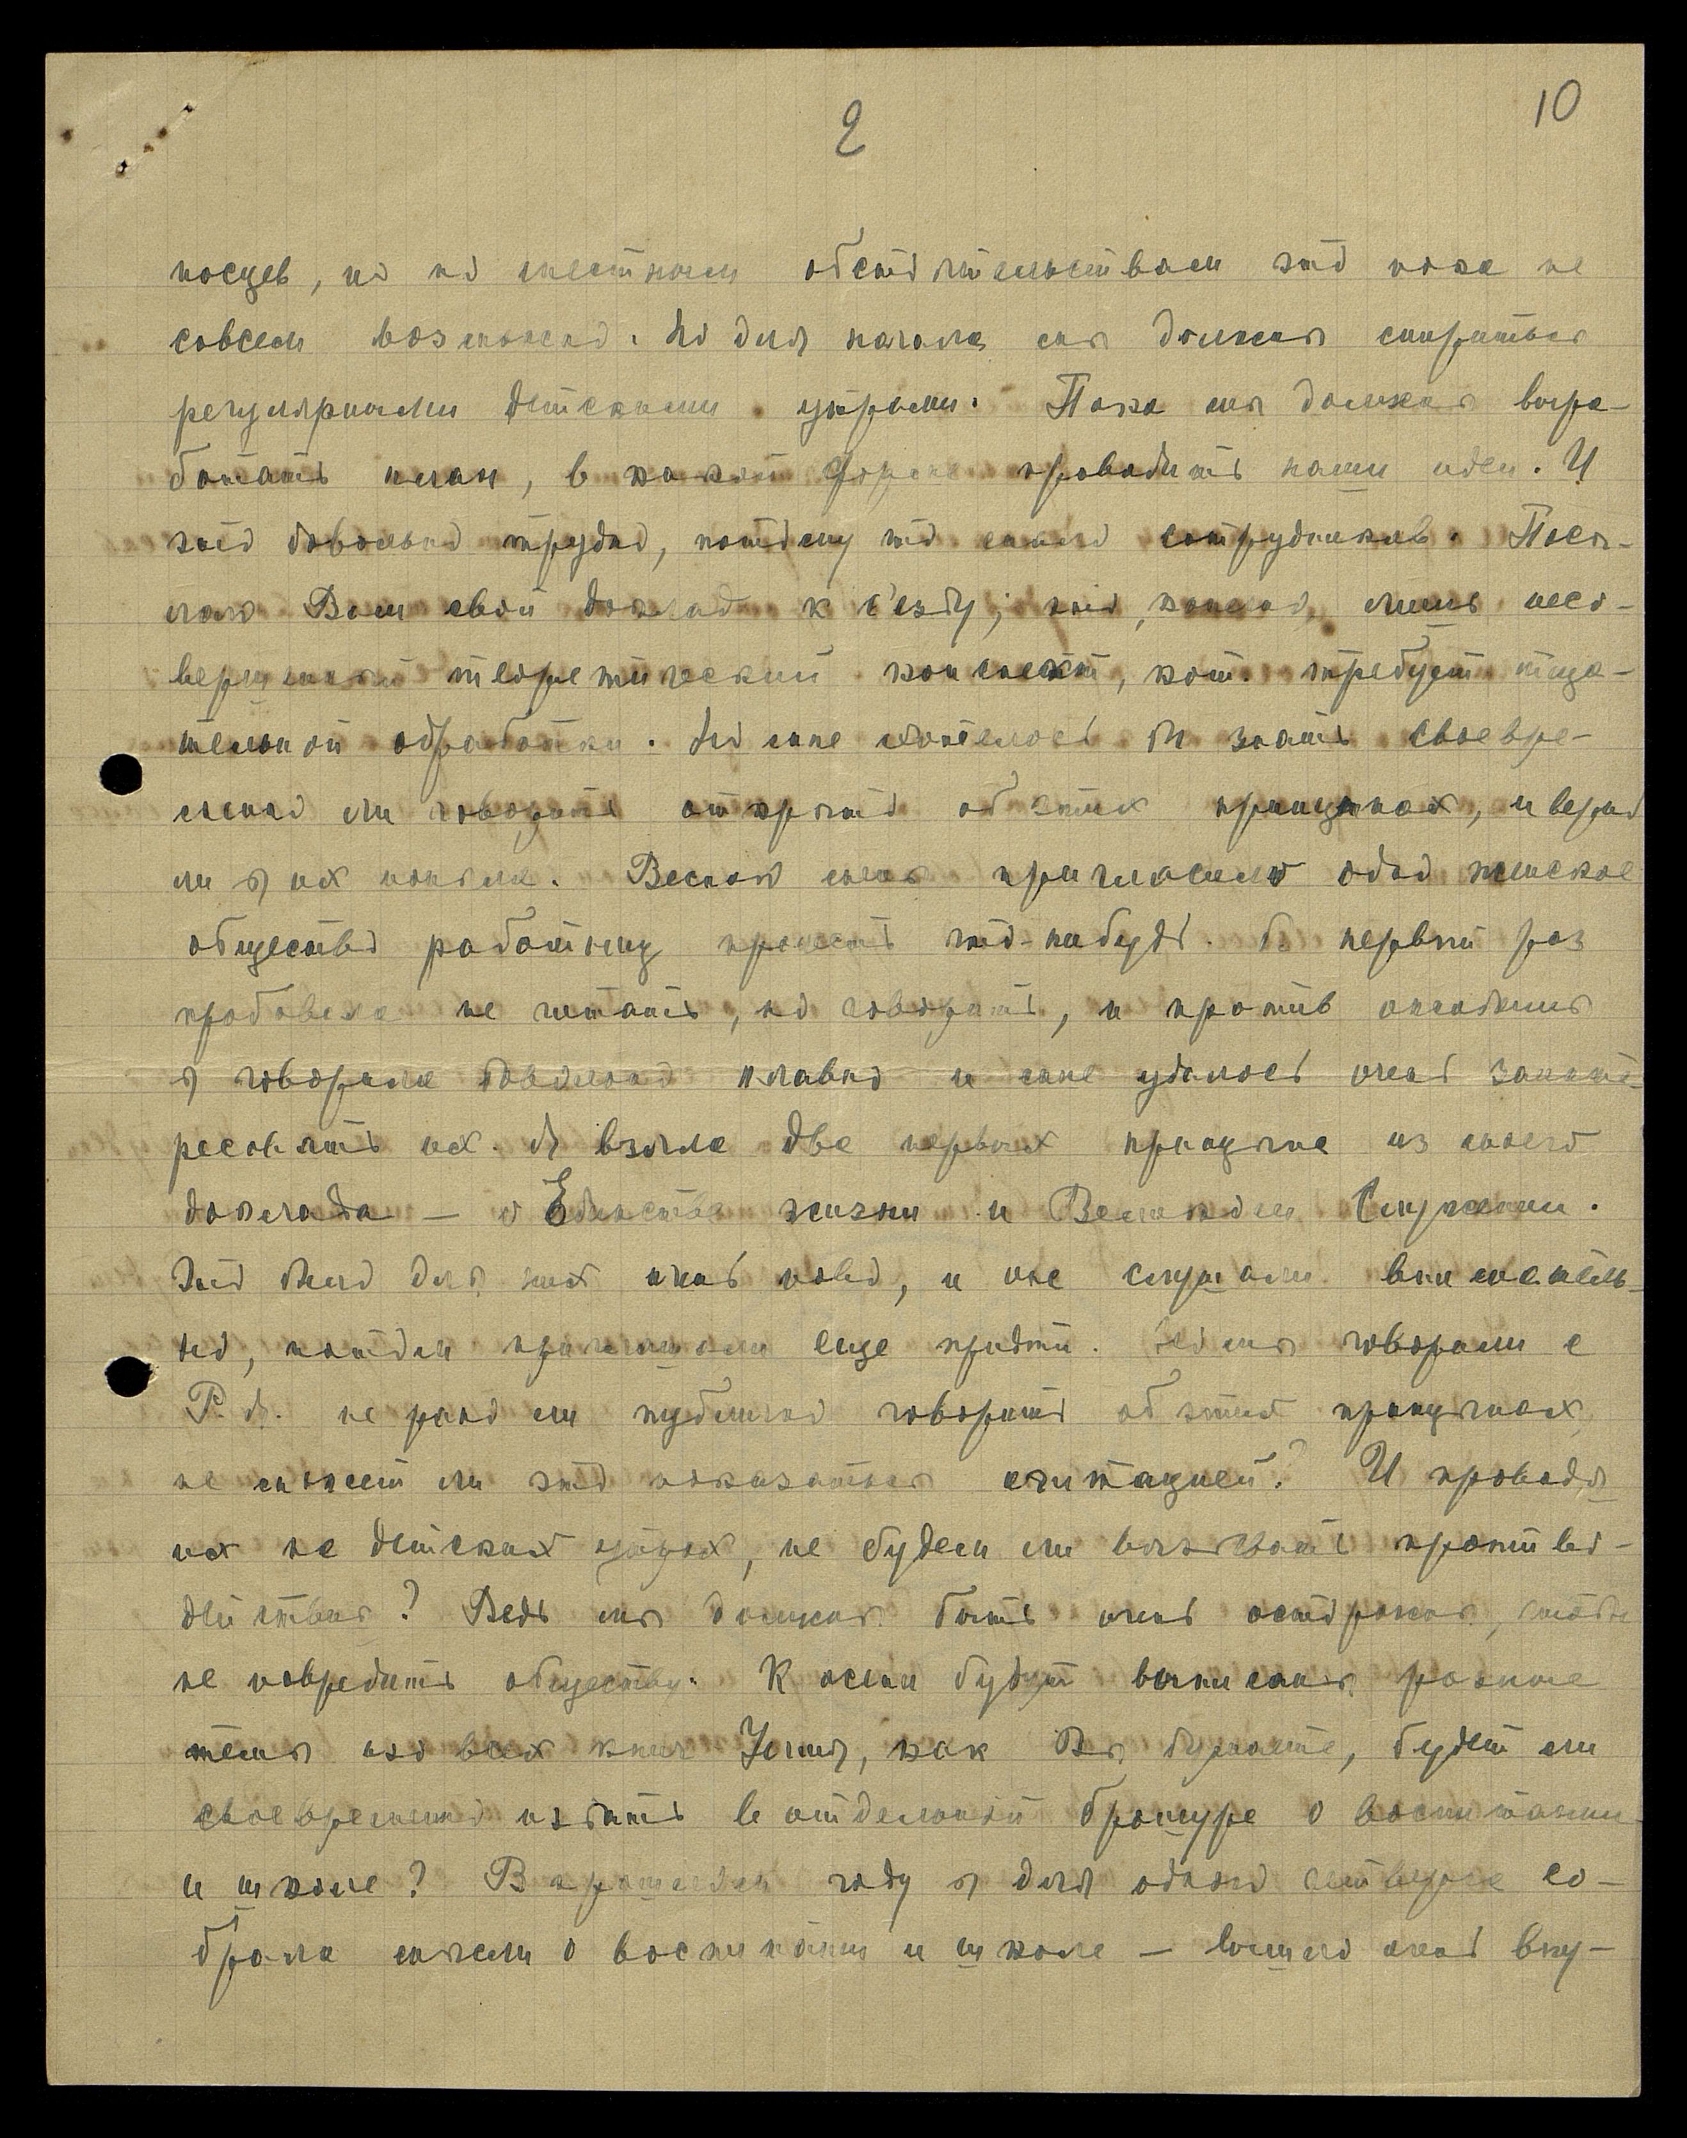 10
2
носцев, но по местным обстоятельствам это пока не
совсем возможно. Но для начала мы должны смириться
регулярными детскими утрами. Пока мы должны выра-
ботать план, в какой форме проводить наши идеи. И
это довольно трудно, потому что мало сотрудников. Посы-
лаю Вам свой доклад к с'езду; это, конечно, лишь несо-
вершенный теоретический конспект, кот. требует тща-
тельной обработки. Но мне хотелось бы знать своевре-
менно ли говорить открыто об этих принципах, и верно
ли я их поняла. Весною меня пригласило одно женское
общество работниц прочесть что-нибудь. Я первый раз
пробовала не читать, но говорить, и против ожидания
я говорила довольно плавно и мне удалось очень заинте-
ресовать их. Я взяла два первых принципа из моего
доклада — о Единстве жизни и Великом Служении.
Это было для них очень ново, и они слушали вниматель-
но, потом приглашали еще придти. Но мы говорили с
Р. Я. не рано ли публично говорить об этих принципах,
не может ли это показаться агитацией? И проводя
их на детских утрах, не будем ли вызывать противо-
действия? Ведь мы должны быть очень осторожны, чтобы
не повредить обществу. К осени будут выписаны разные
темы изо всех книг Учения, как Вы думаете, будет ли
своевременно издать в отдельной брошюре о воспитании
и школе? В прошедшем году я для одного сотрудника со-
брала мысли о воспитании и школе — вышло очень вну-